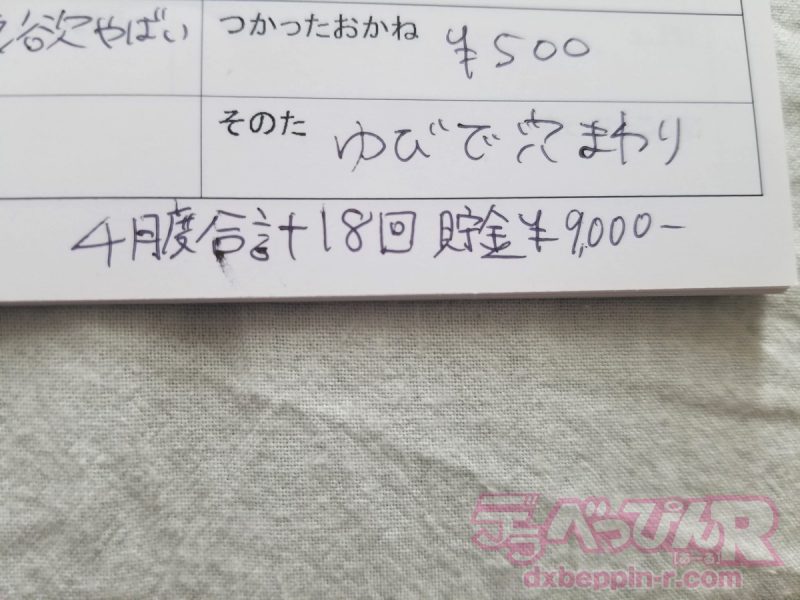 欲やばい
つかったおかね ¥500
そのた ゆびで穴まわり
4月度合計18回 貯金¥9,000-
デラべっぴんR
[あーる]
dxbeppin-r.com